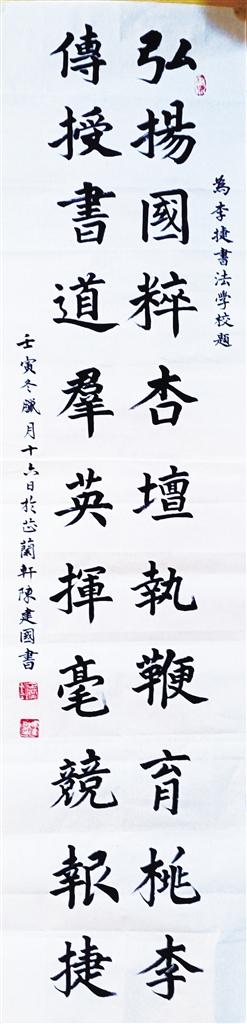 為李捷書法學校題
弘揚國粹杏壇執鞭育桃李
傳授書道羣英揮毫競報捷
壬寅冬臘月十六日於芷蘭軒陳建國書